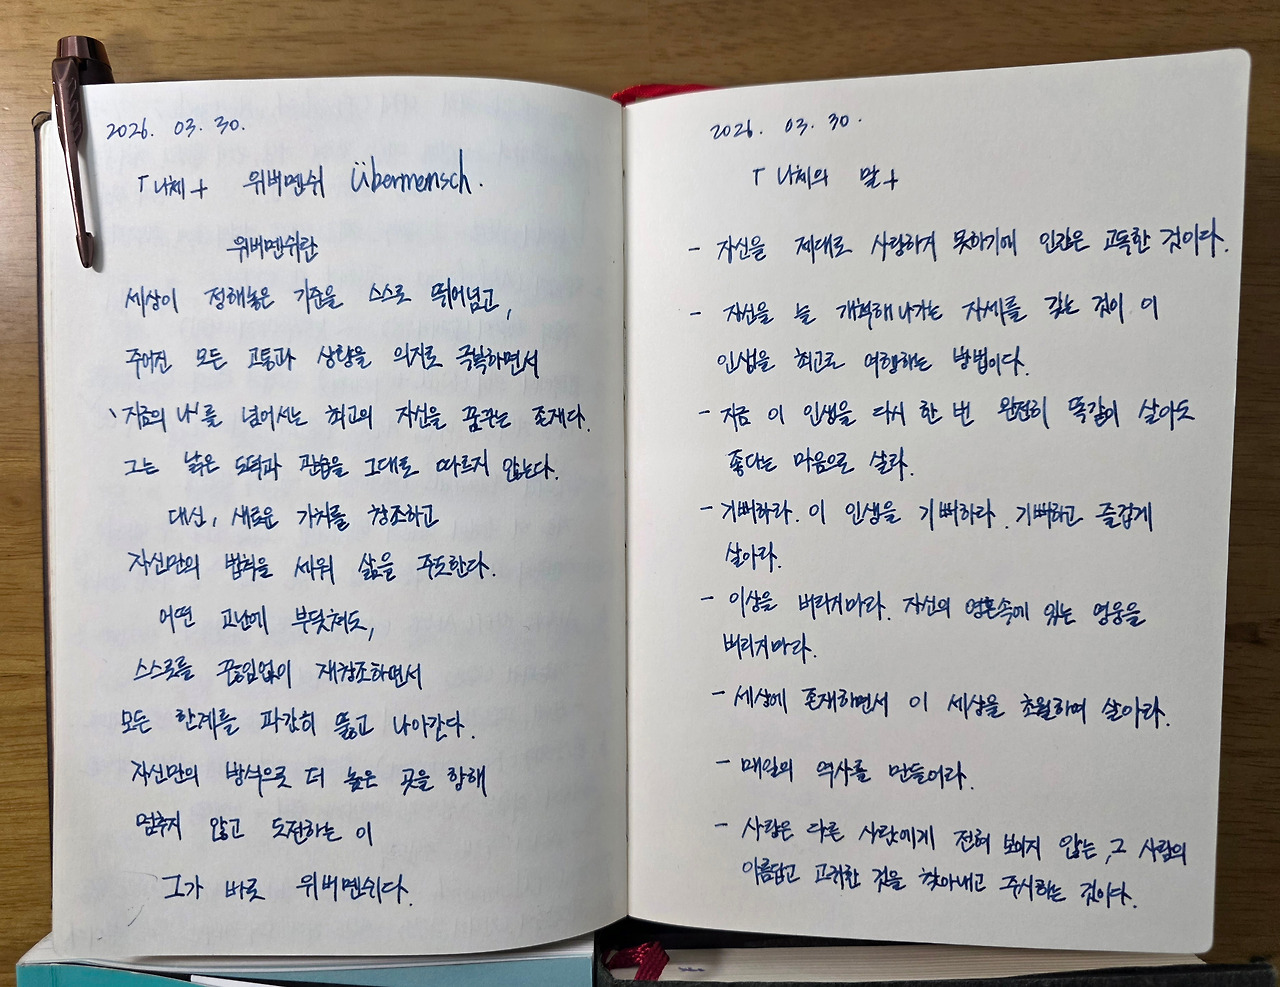 2026. 03. 30.
「니체」 위버멘쉬 Übermensch.
위버멘쉬란
세상이 정해놓은 기준을 스스로 뛰어넘고,
주어진 모든 고통과 상황을 의지로 극복하면서
'지금의 나'를 넘어서는 최고의 자신을 꿈꾸는 존재다.
그는 낡은 도덕과 관습을 그대로 따르지 않는다.
대신, 새로운 가치를 창조하고
자신만의 법칙을 세워 삶을 주도한다.
어떤 고난에 부딪쳐도,
스스로를 끊임없이 재창조하면서
모든 한계를 과감히 뚫고 나아간다.
자신만의 방식으로 더 높은 곳을 향해
멈추지 않고 도전하는 이
그가 바로 위버멘쉬다.
2026. 03. 30.
「니체의 말」
- 자신을 제대로 사랑하지 못하기에 인간은 고독한 것이다.
- 자신을 늘 개척해나가는 자세를 갖는 것이 이
인생을 최고로 여행하는 방법이다.
- 지금 이 인생을 다시 한 번 완전히 똑같이 살아도
좋다는 마음으로 살라.
- 기뻐하라. 이 인생을 기뻐하라. 기뻐하고 즐겁게
살아라.
- 이상을 버리지마라. 자신의 영혼속에 있는 영웅을
버리지마라.
- 세상에 존재하면서 이 세상을 초월하며 살아라.
- 매일의 역사를 만들어라.
- 사랑은 다른 사람에게 전혀 보이지 않는, 그 사람의
아름답고 고귀한 것을 찾아내고 주시하는 것이다.